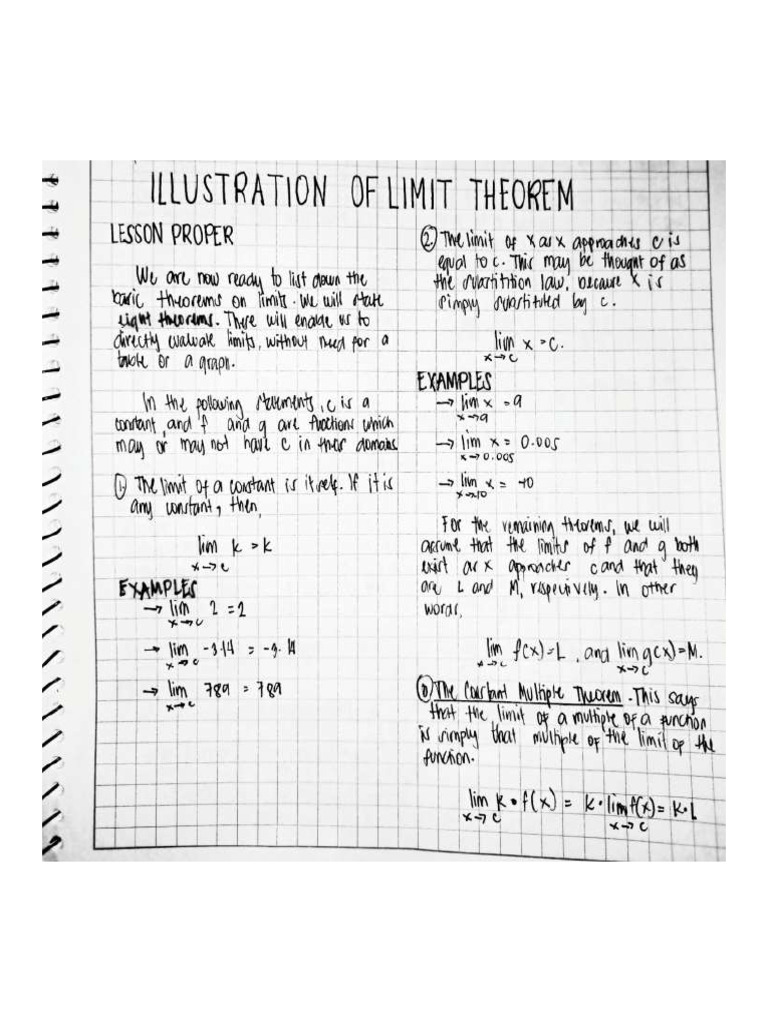 ILLUSTRATION OF LIMIT THEOREM
LESSON PROPER
We are now ready to list down the
basic theorems on limits. We will state
eight theorems. These will enable us to
directly evaluate limits, without need for a
table or a graph.
In the following statements, c is a
constant, and f and g are functions which
may or may not have c in their domains
① The limit of a constant is itself. If it is
any constant, then,
lim k = k
x→c
EXAMPLES
→ lim 2 = 2
x→c
→ lim -3.14 = -3.14
x→c
→ lim 789 = 789
x→c
② The limit of x as x approaches c is
equal to c. This may be thought of as
the substitution law, because x is
simply substituted by c.
lim x = c.
x→c
EXAMPLES
→ lim x = 9
x→9
→ lim x = 0.005
x→0.005
→ lim x = -10
x→-10
For the remaining theorems, we will
assume that the limits of f and g both
exist as x approaches c and that they
are L and M, respectively. In other
words,
lim f(x) = L, and lim g(x) = M.
x→c x→c
The Constant Multiple Theorem. This says
that the limit of a multiple of a function
is simply that multiple of the limit of the
function.
lim k • f(x) = k • lim f(x) = k • L
x→c x→c